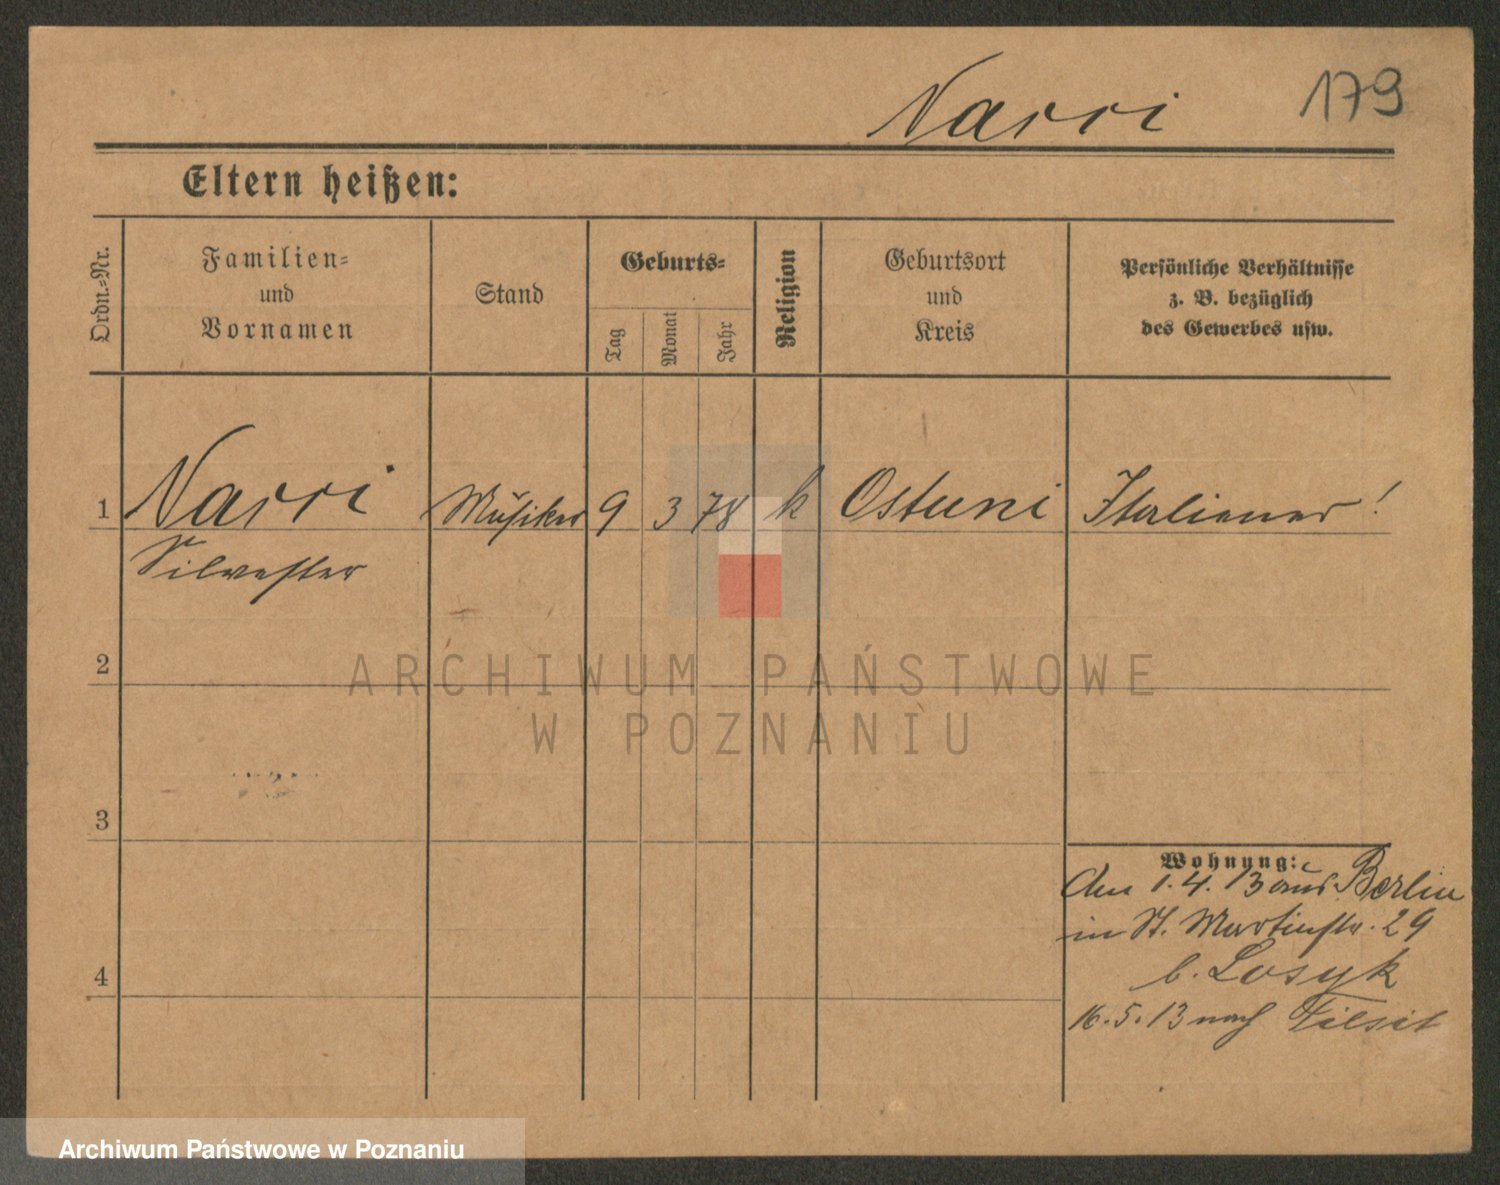 Narri
179
Eltern heißen:
Ordn.-Nr.
Familien-
und
Vornamen
Stand
Geburts-
Tag
Monat
Jahr
Religion
Geburtsort
und
Kreis
Persönliche Verhältnisse
z. B. bezüglich
des Gewerbes usw.
1 Narri Musiker 9 3 78 k Ostuni Italiener!
Silvester
2
3
4
Wohnung:
Am 1.4.13 aus Berlin
in St. Martinstr. 29
b. Losyk
16.5.13 nach Tilsit
ARCHIWUM PAŃSTWOWE
W POZNANIU
Archiwum Państwowe w Poznaniu